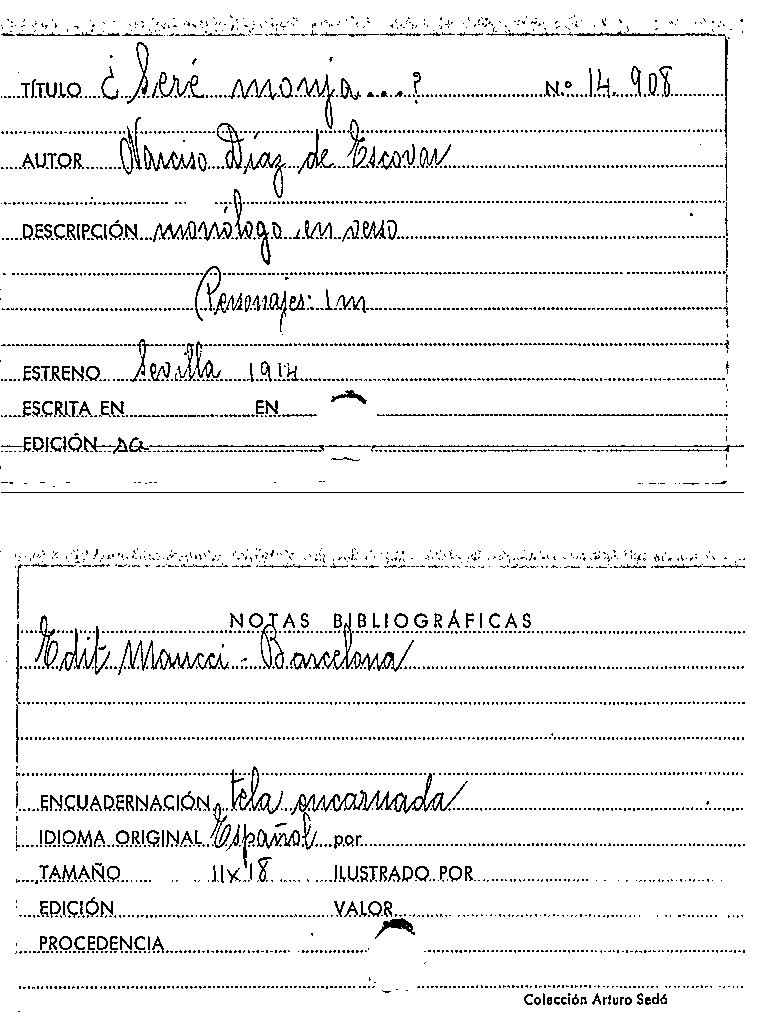 TÍTULO ¿Seré monja...? N.º 14.908
AUTOR Narciso Díaz de Escovar
DESCRIPCIÓN monólogo en verso
Personajes: 1 m
ESTRENO Sevilla 1914
ESCRITA EN EN
EDICIÓN sa
NOTAS BIBLIOGRÁFICAS
Edit Maucci - Barcelona
ENCUADERNACIÓN tela encarnada
IDIOMA ORIGINAL Español por
TAMAÑO 11x18 ILUSTRADO POR
EDICIÓN VALOR
PROCEDENCIA
Colección Arturo Sedó